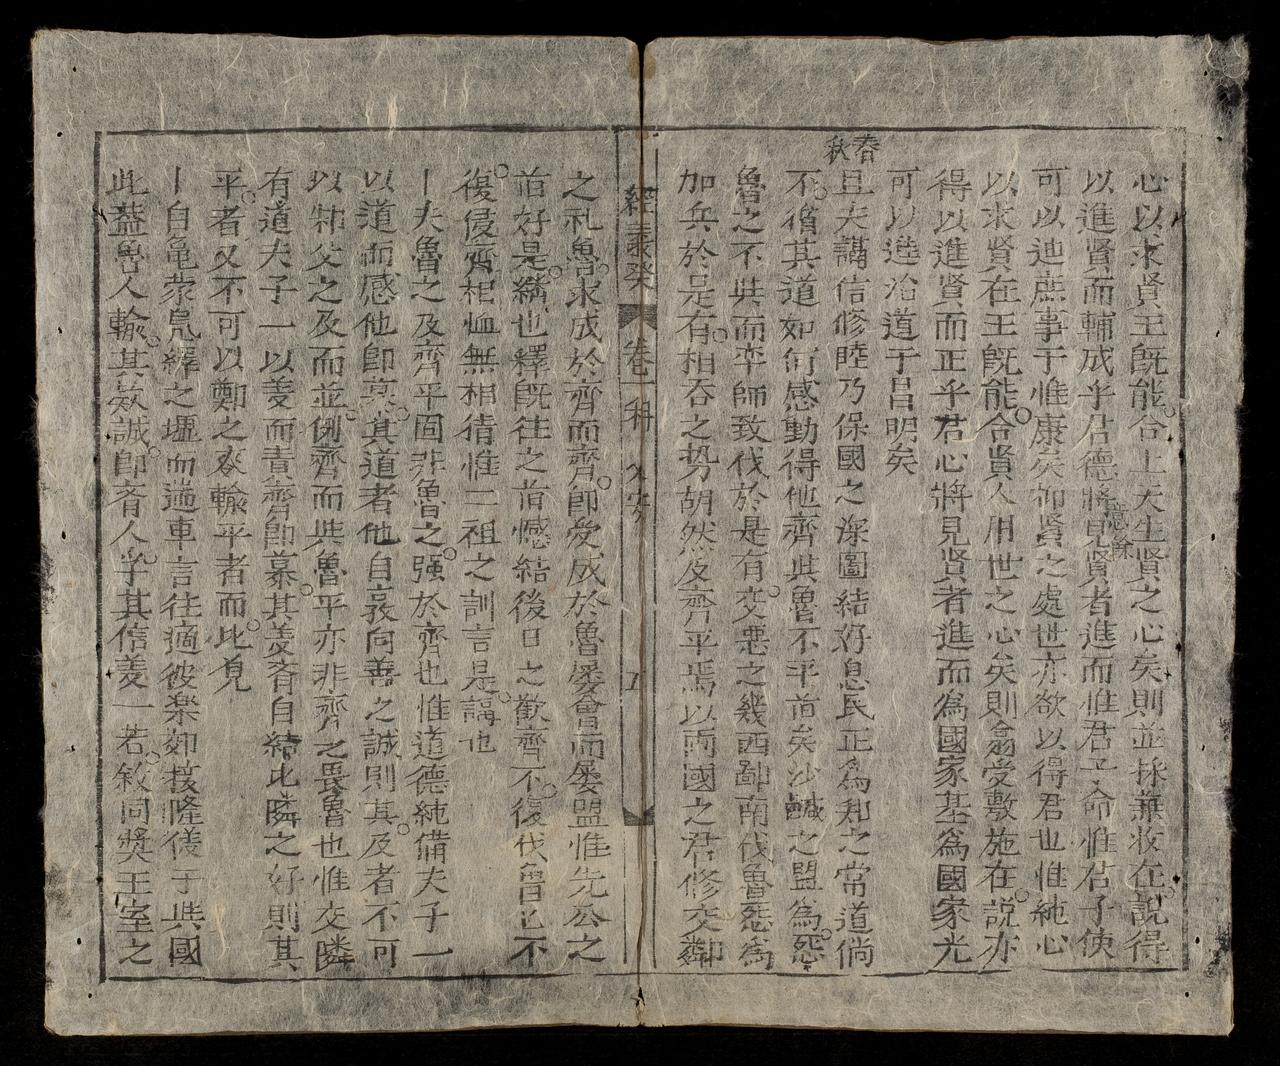 心以求賢王既能合上天生賢之心矣則並採兼收在說得
以進賢而輔成乎君德將見賢者進而惟君子命惟君子使
可以迪庶事于惟康矣卹賢之處世亦欲以得君也惟純心
以求賢在王既能合賢人用世之心矣則翕受敷施在說亦
得以進賢而正乎君心將見賢者進而為國家基為國家光
可以進治道于昌明矣
春秋
且夫講信修睦乃保國之深圖結好息民正為邦之常道倘
不循其道如何感動得他齊與魯不平首矣沙鹹之盟為惡
魯之不與而率師致伐於是有交惡之幾西鄙南伐魯惡齊
加兵於是有相吞之势胡然及齊平焉以兩國之君修交鄰
經義癸 卷一 科 久安 五
之礼魯求成於齊而齊即受成於魯屡會而屡盟惟先公之
首好是搆也釋既往之首憾結後日之歡齊不復伐魯已不
復侵齊相恤無相猜惟二祖之訓言是講也
丨夫魯之及齊平固非魯之强於齊也惟道德純備夫子一
以道而感他即慕其道者他自襄向善之誠則其及者不可
以邾父之及而並例齊而與魯平亦非齊之畏魯也惟交隣
有道夫子一以義而責齊即慕其義斉自結比隣之好則其
平者又不可以鄭之來輸平者而比見
丨自龜蒙鳧繹之壃而遄車言往適彼樂郊接隆儀于與國
此葢魯人輸其欵誠即斉人孚其信義一若敘同獎王室之